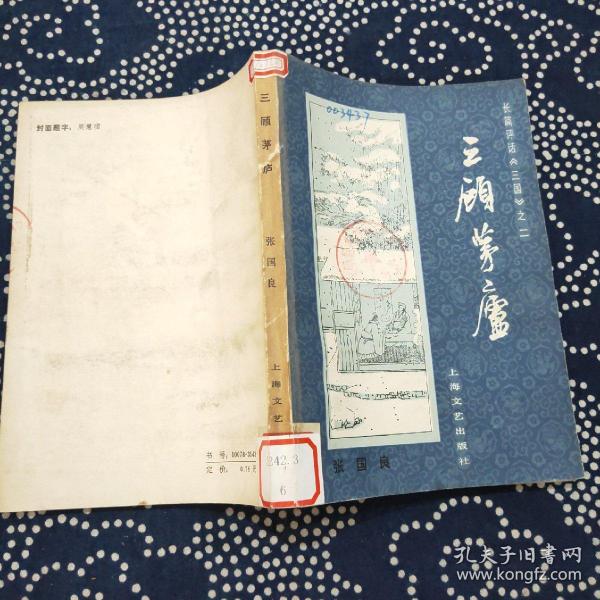 封面题字：周慧珺
三顾茅庐
张国良
上海文艺
242.3
6
003437
长篇评话《三国》之二
三顾茅廬
上海文艺出版社
张国良
孔夫子旧书网
www.kongfz.com